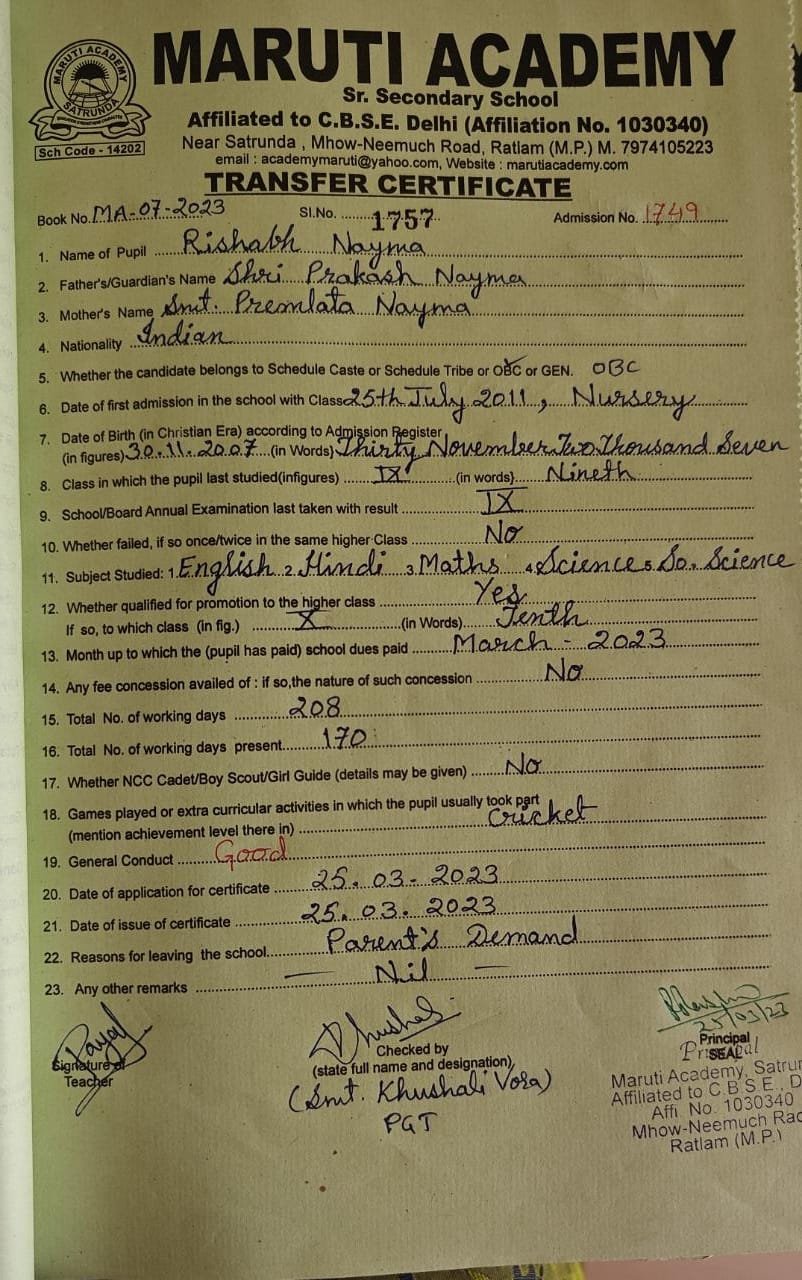 MARUTI ACADEMY
MARUTI ACADEMY
SATRUNDA
Sr. Secondary School
Affiliated to C.B.S.E. Delhi (Affiliation No. 1030340)
Sch Code - 14202
Near Satrunda , Mhow-Neemuch Road, Ratlam (M.P.) M. 7974105223
email : academymaruti@yahoo.com, Website : marutiacademy.com
TRANSFER CERTIFICATE
Book No. MA-07-2023 Sl.No. 1757 Admission No. 1749
1. Name of Pupil Rishabh Nayma
2. Father's/Guardian's Name Shri Prakash Nayma
3. Mother's Name Smt. Premlata Nayma
4. Nationality Indian
5. Whether the candidate belongs to Schedule Caste or Schedule Tribe or OBC or GEN. OBC
6. Date of first admission in the school with Class 25th July 2011, Nursery
7. Date of Birth (in Christian Era) according to Admission Register
(in figures) 30.11.2007 (in Words) Thirty November Two Thousand Seven
8. Class in which the pupil last studied(infigures) IX (in words) Nineth
9. School/Board Annual Examination last taken with result IX
10. Whether failed, if so once/twice in the same higher Class No
11. Subject Studied: 1. English 2. Hindi 3. Maths 4. Science 5. So. Science
12. Whether qualified for promotion to the higher class Yes
If so, to which class (in fig.) X (in Words) Tenth
13. Month up to which the (pupil has paid) school dues paid March - 2023
14. Any fee concession availed of : if so,the nature of such concession No
15. Total No. of working days 208
16. Total No. of working days present 170
17. Whether NCC Cadet/Boy Scout/Girl Guide (details may be given) No
18. Games played or extra curricular activities in which the pupil usually took part
(mention achievement level there in) Cricket
19. General Conduct Good
20. Date of application for certificate 25.03-2023
21. Date of issue of certificate 25.03.2023
22. Reasons for leaving the school Parent's Demand
23. Any other remarks — Nil —
25/03/23
Signature of
Teacher
Checked by
(state full name and designation)
(Smt. Khushali Vora)
PGT
Principal
SEAL
Principal
Maruti Academy, Satrun
Affiliated to C.B.S.E., D
Affi. No. 1030340
Mhow-Neemuch Roa
Ratlam (M.P.)